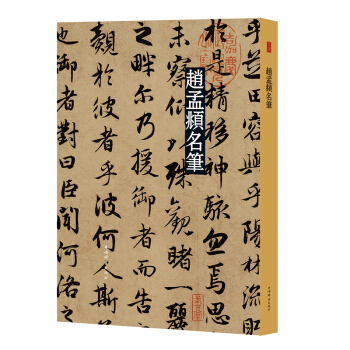 乎芝田容與乎陽林流眄
於是精移神駭忽焉思
未察仰以殊觀睹一麗
之畔尔乃援御者而告
覿於彼者乎彼何人斯
也御者對曰臣聞河洛之
趙孟頫名筆
趙孟頫名筆